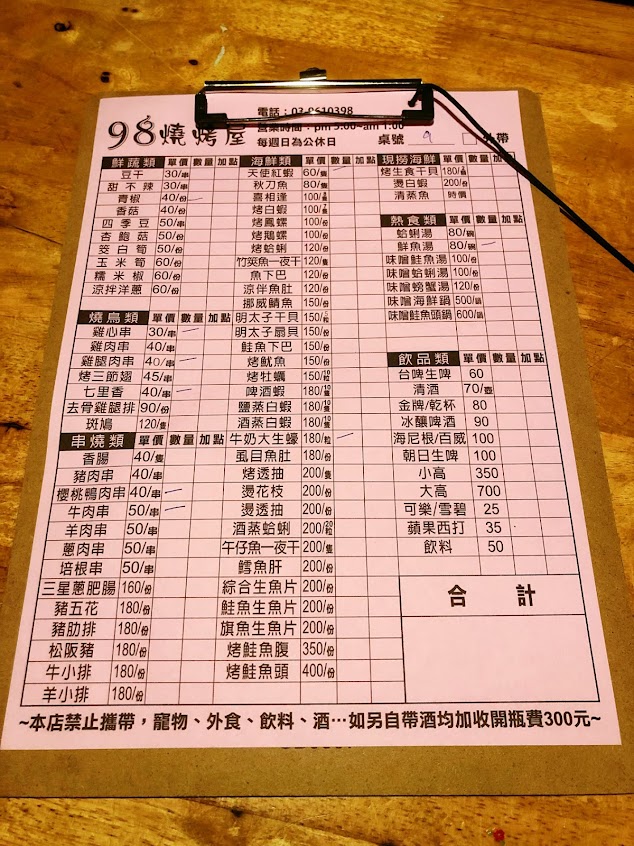 電話：03-9610398
98燒烤屋
營業時間：pm 5:00~am 1:00
每週日為公休日
桌號 9 外帶
鮮蔬類 單價 數量 加點
豆干 30/串
甜不辣 30/串
青椒 40/份
香菇 40/份
四季豆 50/串
杏鮑菇 50/份
筊白筍 50/份
玉米筍 60/份
糯米椒 60/份
涼拌洋蔥 60/份
燒鳥類 單價 數量 加點
雞心串 30/串
雞肉串 40/串
雞腿肉串 40/串
烤三節翅 45/串
七里香 40/串
去骨雞腿排 90/份
斑鳩 120/隻
串燒類 單價 數量 加點
香腸 40/隻
豬肉串 40/串
櫻桃鴨肉串 40/串
牛肉串 50/串
羊肉串 50/串
蔥肉串 50/串
培根串 50/串
三星蔥肥腸 160/份
豬五花 180/份
豬肋排 180/份
松阪豬 180/份
牛小排 180/份
羊小排 180/份
海鮮類 單價 數量 加點
天使紅蝦 60/隻
秋刀魚 80/隻
喜相逢 100/
烤白蝦 100/
烤鳳螺 100/份
烤鵝螺 100/份
烤蛤蜊 120/份
竹筴魚一夜干 120/隻
魚下巴 120/份
涼伴魚肚 120/份
挪威鯖魚 150/份
明太子干貝 150/
明太子扇貝 150/
鮭魚下巴 150/份
烤魷魚 150/份
烤牡蠣 150/10粒
啤酒蝦 180/10隻
鹽蒸白蝦 180/10隻
酒蒸白蝦 180/10隻
牛奶大生蠔 180/粒
虱目魚肚 180/份
烤透抽 200/隻
燙花枝 200/份
燙透抽 200/份
酒蒸蛤蜊 200/20粒
午仔魚一夜干 200/隻
鱈魚肝 200/份
綜合生魚片 200/份
鮭魚生魚片 200/份
旗魚生魚片 200/份
烤鮭魚腹 350/份
烤鮭魚頭 400/份
現撈海鮮 單價 數量 加點
烤生食干貝 180/
燙白蝦 200/份
清蒸魚 時價
熱食類 單價 數量 加點
蛤蜊湯 80/碗
鮮魚湯 80/碗
味噌鮭魚湯 100/份
味噌蛤蜊湯 100/份
味噌螃蟹湯 120/份
味噌海鮮鍋 500/鍋
味噌鮭魚頭鍋 600/鍋
飲品類 單價 數量 加點
台啤生啤 60
清酒 70/壺
金牌/乾杯 80
冰釀啤酒 90
海尼根/百威 100
朝日生啤 100
小高 350
大高 700
可樂/雪碧 25
蘋果西打 35
飲料 50
合計
~本店禁止攜帶，寵物、外食、飲料、酒…如另自帶酒均加收開瓶費300元~